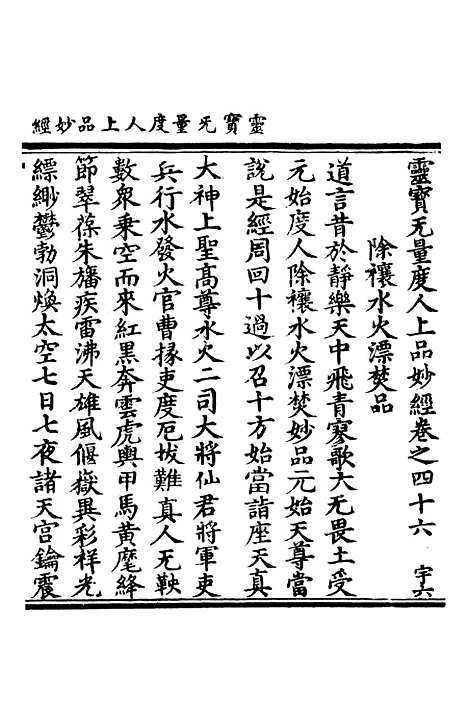 靈寶无量度人上品妙經
靈寶无量度人上品妙經卷之四十六 宇六
除禳水火漂焚品
道言昔於靜樂天中飛青寥歌大无畏土受
元始度人除禳水火漂焚妙品元始天尊當
說是經周回十過以召十方始當詣座天真
大神上聖高尊水火二司大將仙君將軍吏
兵行水發火官曹掾吏度厄拔難真人无鞅
數衆乗空而來紅黑奔雲虎輿甲馬黄麾絳
節翠葆朱旛疾雷沸天雄風偃嶽異彩祥光
縹緲鬱勃洞煥太空七日七夜諸天宫鑰震